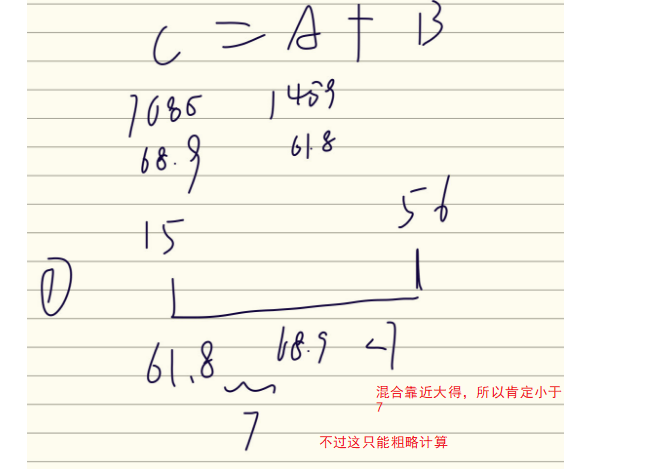 C = A + B
7085 1409
68.9 61.8
15 56
①
61.8 68.9 <7
7
混合靠近大得，所以肯定小于
7
不过这只能粗略计算